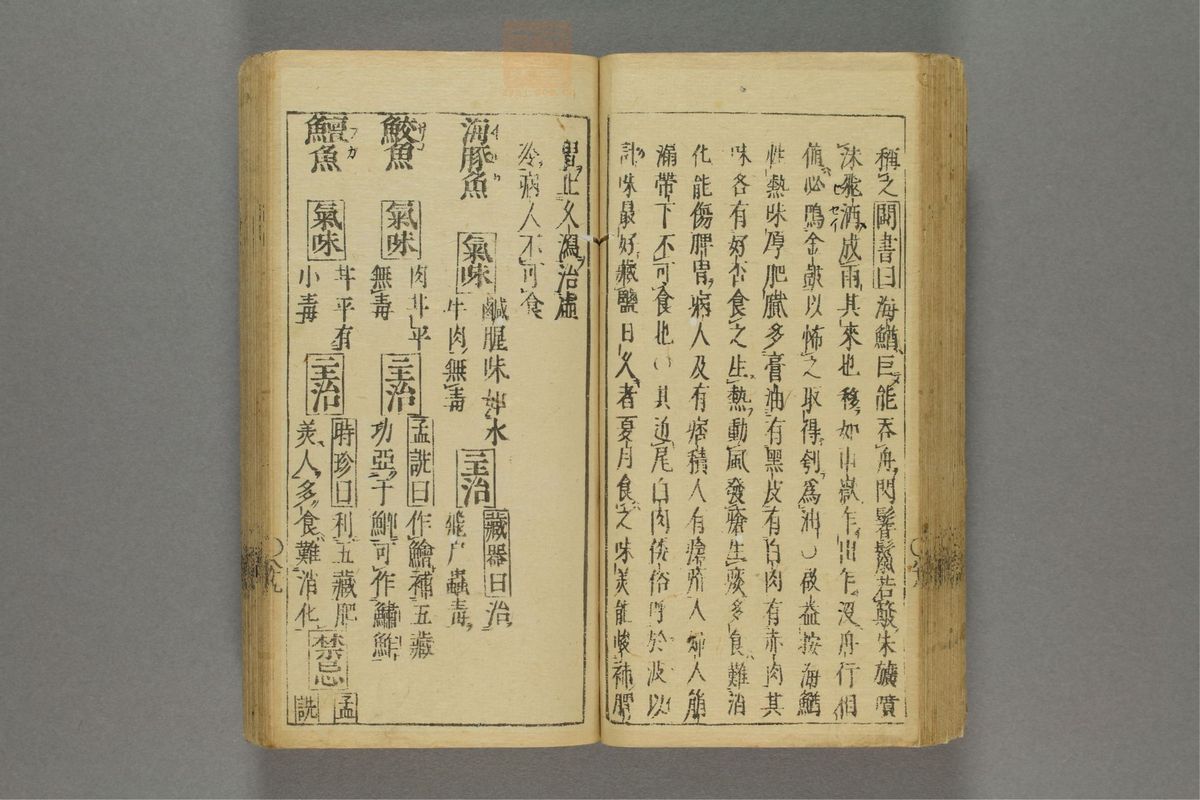 稱之閩書曰海鰌巨能吞舟閃鬐鬣若簸朱旗噴
沫飛洒成雨其來也移如山嶽乍出乍沒舟行相
備必鳴金鼓以怖之取得刳爲油○啟益按海鰌
性熱味厚肥膩多膏油有黑皮有白肉有赤肉其
味各有好否食之生熱動風發瘡生痰多食難消
化能傷脾胃病人及有痞積人有瘡疥人婦人崩
漏帶下不可食也○其近尾白肉倭俗呼於波以
計味最好藏鹽日久者夏月食之味美能峻補脾
胃止久瀉治虛
冷病人不可食
海豚魚 氣味 鹹腥味如水
牛肉無毒 主治 藏器曰治
飛尸蟲毒
鮫魚 氣味 肉甘平
無毒 主治 孟詵曰作鱠補五藏
功亞于鯽可作鱐鮓
鱣魚 氣味 甘平有
小毒 主治 時珍曰利五藏肥
美人多食難消化 禁忌 孟
詵